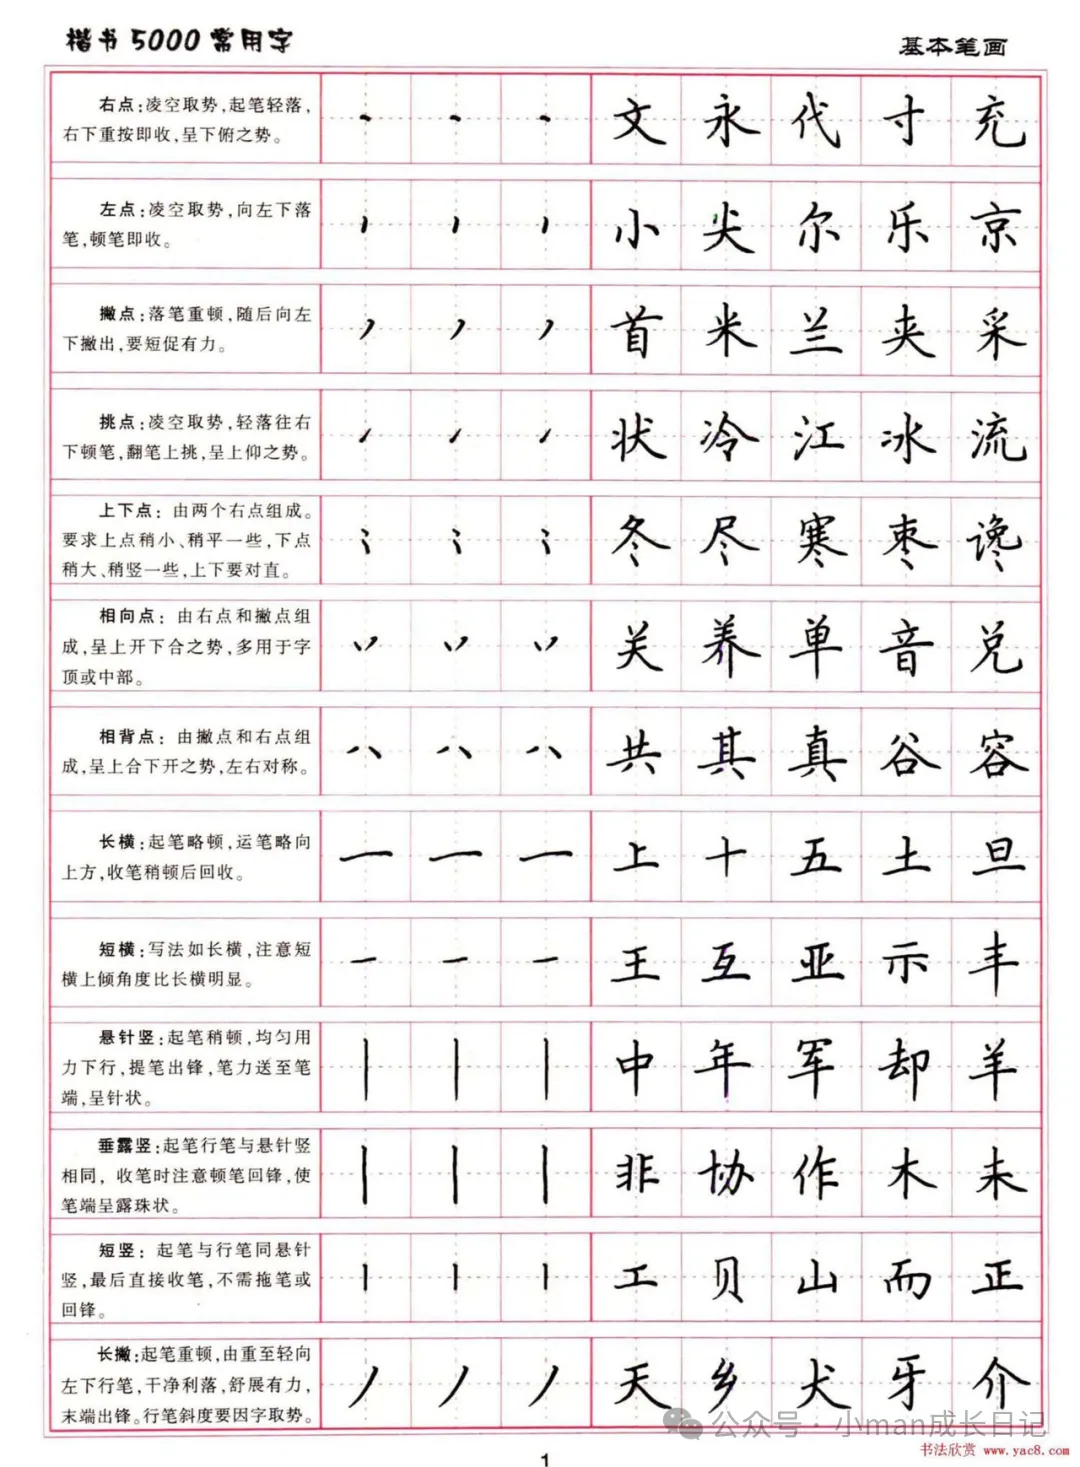 楷书5000常用字
基本笔画
右点:凌空取势,起笔轻落,
右下重按即收,呈下俯之势。
文 永 代 寸 充
左点:凌空取势,向左下落
笔,顿笔即收。
小 尖 尔 乐 京
撇点:落笔重顿,随后向左
下撇出,要短促有力。
首 米 兰 夹 采
挑点:凌空取势,轻落往右
下顿笔,翻笔上挑,呈上仰之势。
状 冷 江 冰 流
上下点:由两个右点组成。
要求上点稍小、稍平一些,下点
稍大、稍竖一些,上下要对直。
冬 尽 寒 枣 谗
相向点:由右点和撇点组
成,呈上开下合之势,多用于字
顶或中部。
关 养 单 音 兑
相背点:由撇点和右点组
成,呈上合下开之势,左右对称。
共 其 真 谷 容
长横:起笔略顿,运笔略向
上方,收笔稍顿后回收。
上 十 五 土 旦
短横:写法如长横,注意短
横上倾角度比长横明显。
王 互 亚 示 丰
悬针竖:起笔稍顿,均匀用
力下行,提笔出锋,笔力送至笔
端,呈针状。
中 年 军 却 羊
垂露竖:起笔行笔与悬针竖
相同,收笔时注意顿笔回锋,使
笔端呈露珠状。
非 协 作 木 未
短竖:起笔与行笔同悬针
竖,最后直接收笔,不需拖笔或
回锋。
工 贝 山 而 正
长撇:起笔重顿,由重至轻向
左下行笔,干净利落,舒展有力,
末端出锋。行笔斜度要因字取势。
天 乡 犬 牙 介
公众号·小man成长日记
书法欣赏 www.yac8.com
1